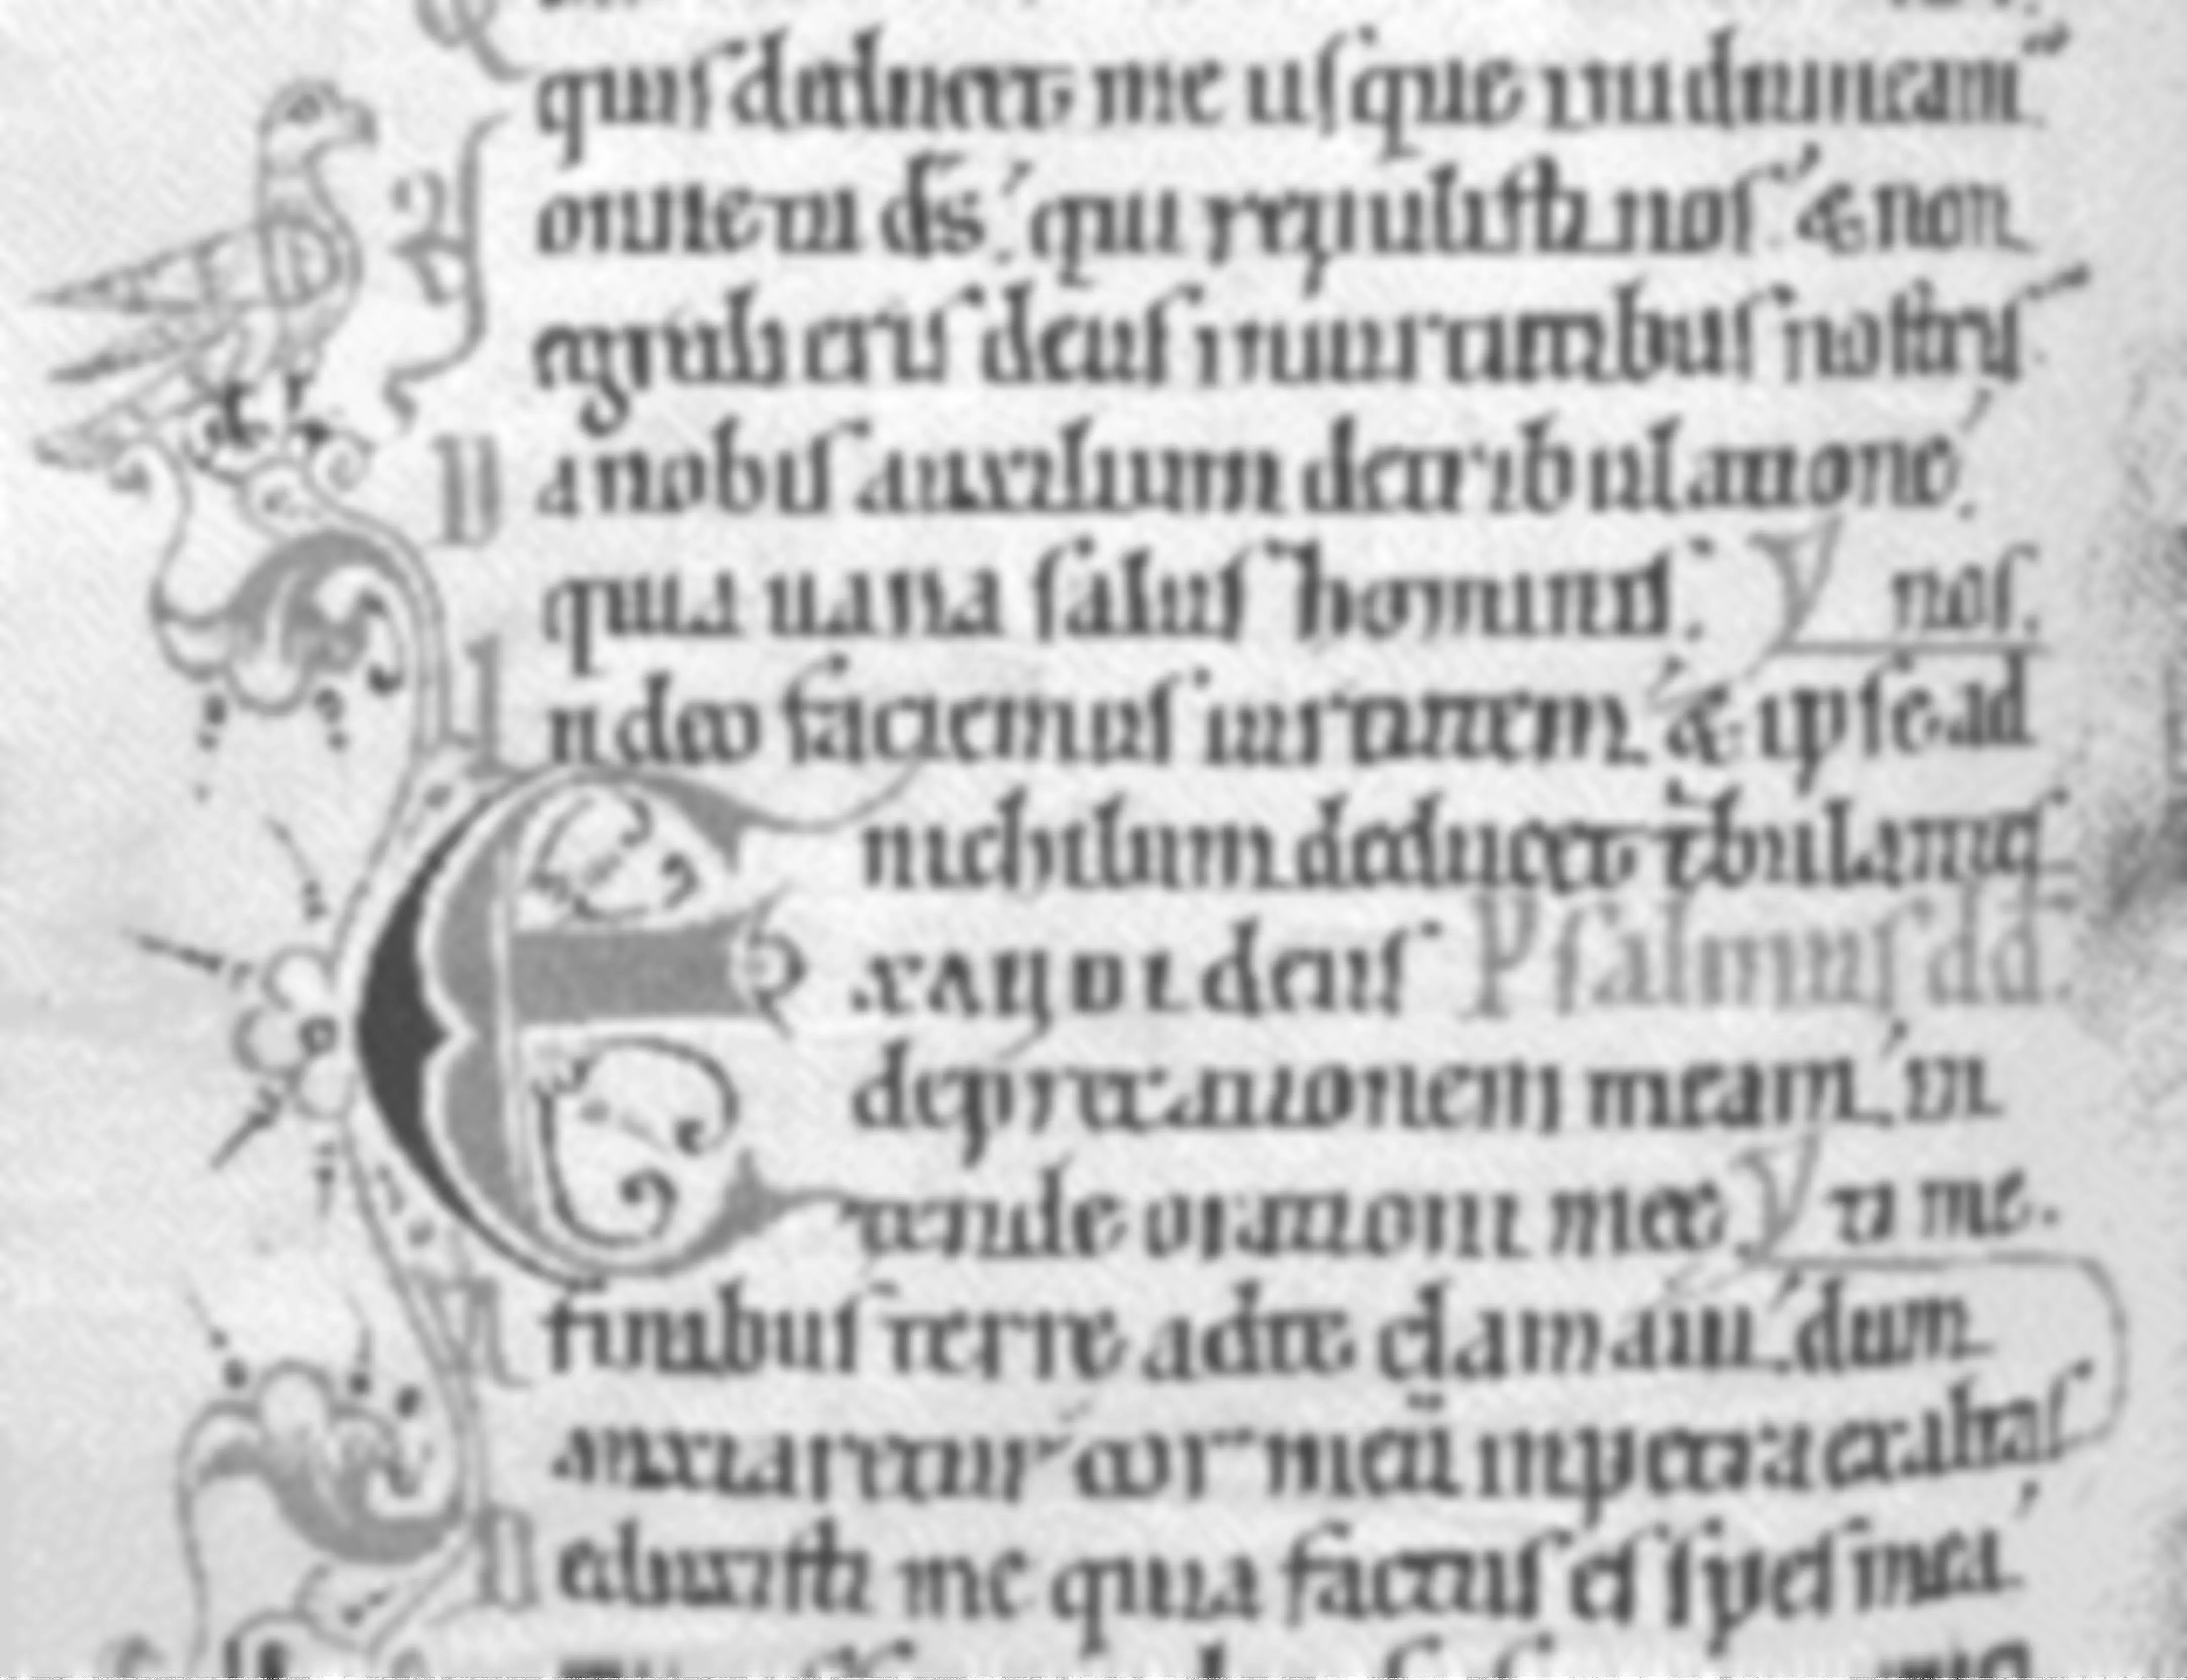 quis deducet me usque in idumeam.
Nonne tu ds. qui repulisti nos. & non
egredieris deus in uirtutibus nostris.
Da nobis auxilium de tribulatione.
quia uana salus hominis. nos.
In deo faciemus uirtutem. & ipse ad
nichilum deducet tbulantes
EXAUDI deus Psalmus dd.
deprecationem meam. in
tende orationi mee ti me.
A finibus terre ad te clamaui. dum
anxiaretur cor meū in petra exaltas
Deduxisti me quia factus es spes mea.